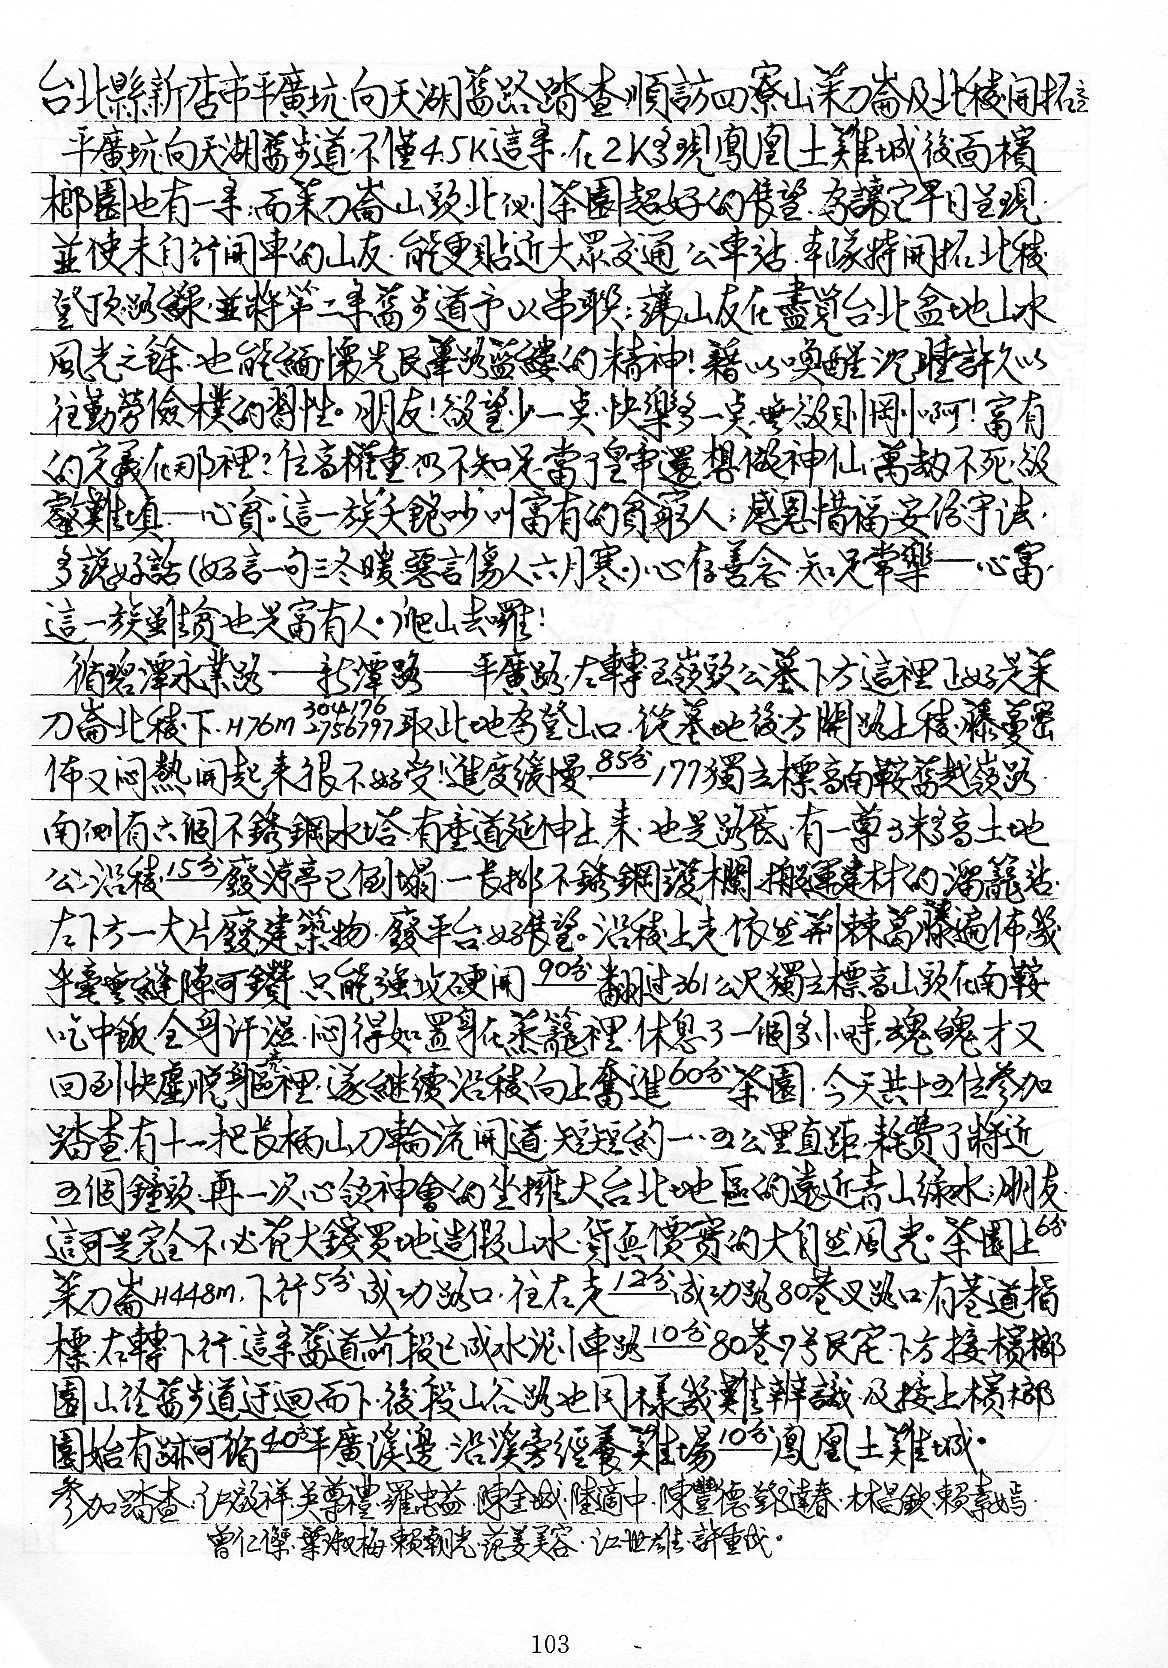 台北縣新店市平廣坑.向天湖舊路踏查順訪四寮山菜刀崙及北稜開拓
平廣坑.向天湖舊步道.不僅4.5K這条.在2K多現鳳凰土雞城後面檳
榔園也有一条;而菜刀崙山頭北側茶園超好的展望.為讓它早日呈現.
並使未自行開車的山友.能更貼近大眾交通公車站.本隊特開拓北稜
登頂路線.並將第二条舊步道予以串聯;讓山友在盡覽台北盆地山水
風光之餘.也能緬懷先民篳路藍縷的精神!藉以喚醒沉睡許久以
往勤勞儉樸的習性。朋友!欲望少一点.快樂多一点.無欲則剛啊!富有
的定義在那裡?位高權重仍不知足.當了皇帝還想做神仙.萬劫不死.欲
壑難填——心貧。這一族夭銹吵叫富有的貧窮人;感恩惜福.安份守法.
多說好話(好言一句三冬暖.惡言傷人六月寒。)心存善念.知足常樂——心富.
這一族雖貧也是富有人。爬山去囉!
循碧潭永業路——新潭路——平廣路.左轉至嶺頭公墓下方這裡正好是菜
刀崙北稜下.H76m 304176 2756797取此地為登山口.從墓地後方開路上稜.藤蔓密
佈又悶熱開起來很不好受!進度緩慢85分177獨立標高南鞍舊越嶺路
南側有六個不銹鋼水塔.有車道延伸上來.也是路底.有一尊3米多高土地
公;沿稜15分廢涼亭已倒塌一長排不銹鋼護欄.搬運建材的溜籠站.
左下方一大片廢建築物.廢平台好展望。沿稜上走依然荊棘葛藤遍佈幾
乎毫無縫隙可鑽.只能強攻硬開90分翻过361公尺獨立標高山頭在南鞍
吃中飯.全身汗濕.悶得如置身在蒸籠裡.休息了一個多小時,魂魄才又
回到快虛脫身軀壳裡.遂繼續沿稜向上奮進60分茶園.今天共十五位參加
踏查.有十一把長柄山刀輪流開道.短短約一.五公里直距.耗費了將近
五個鐘頭.再一次心領神會的坐擁大台北地區的遠近青山綠水;朋友.
這可是完全不必花大錢買地造假山水.貨真價實的大自然風光。茶園上6分
菜刀崙H448m.下行5分成功路口.往右走12分成功路80巷叉路口.有巷道指
標.右轉下行.這条舊道前段已成水泥小車路10分80巷7号民宅.下方接檳榔
園山徑舊步道迂迴而下.後段山谷路也同樣幾難辨識.及接上檳榔
園始有跡可循40分平廣溪邊.沿溪旁經養雞場10分鳳凰土雞城。
參加踏查.江啟祥.吳尊禮.羅忠益.陳全城.陸適中.陳豐德.鄧達春.林昌欽.賴素嫣.
曾仁傑.葉淑梅.賴朝光.范姜美容.江世雄.許重成。
103